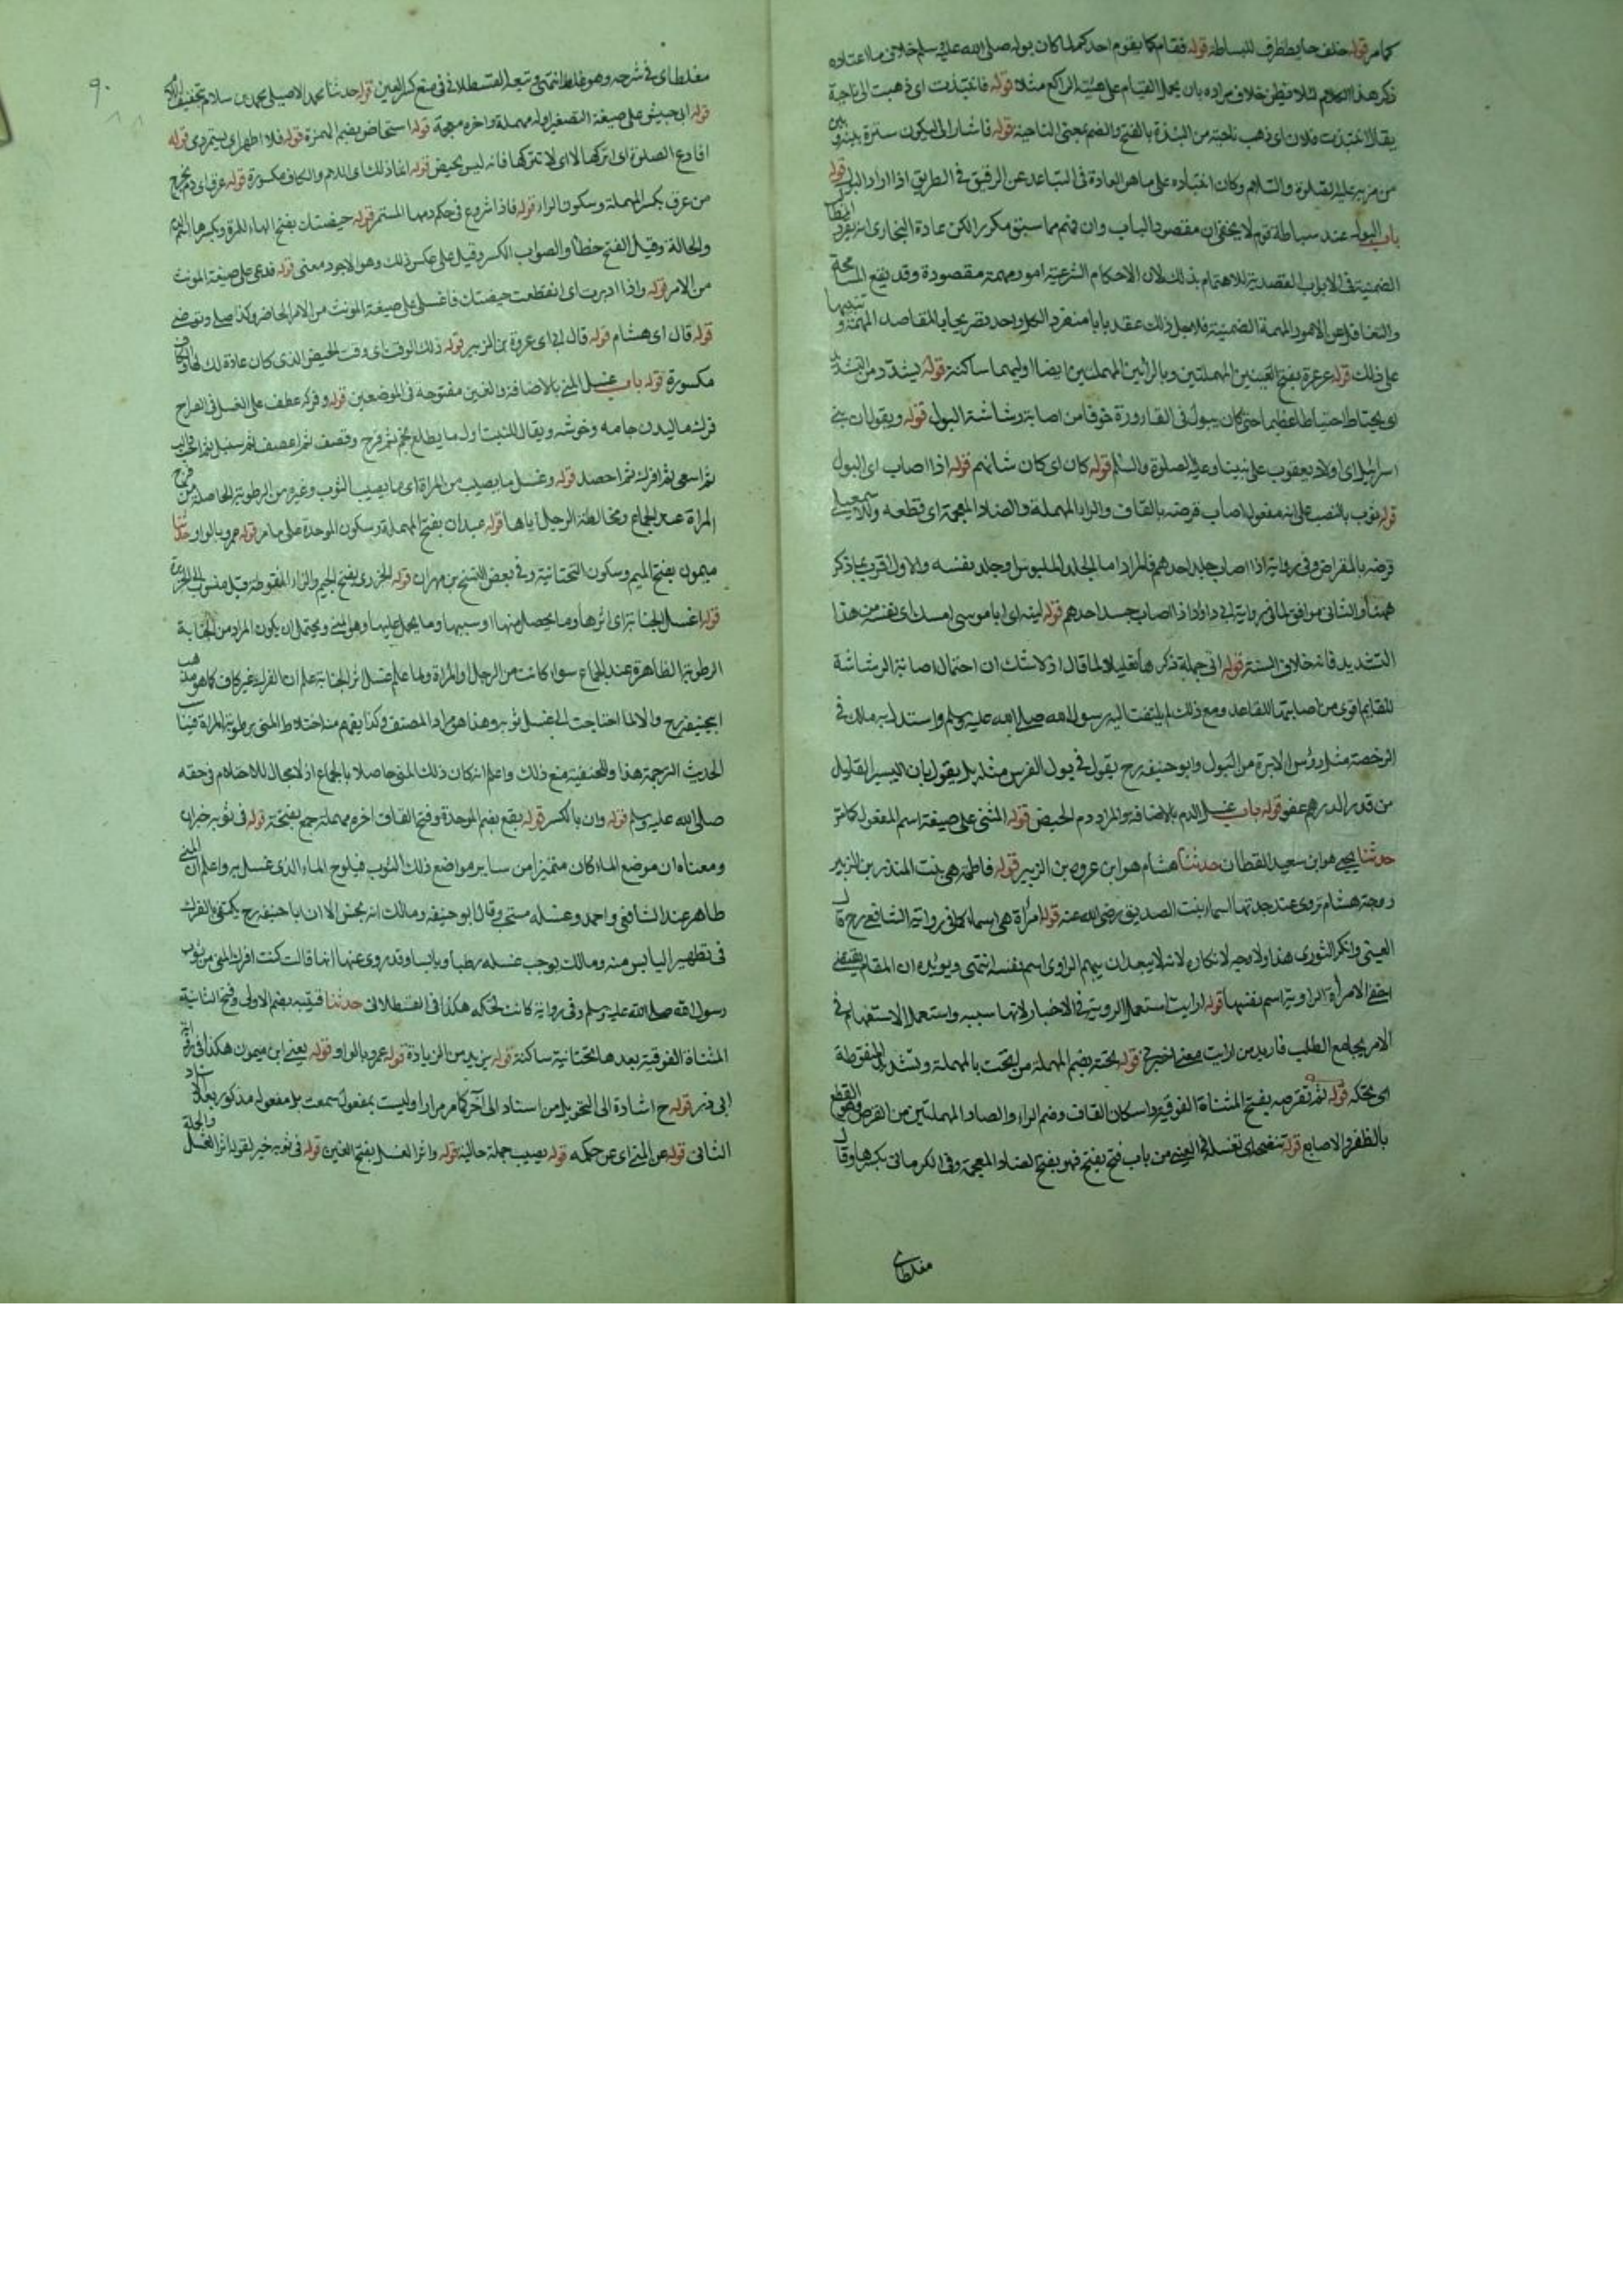 كما مر قوله خلف حايط ظرف للسباطة قوله فقام كما يقوم احدكم لما كان بوله صلى الله عليه وسلم خلاف ما اعتاده
ذكر هذا الكلام لئلا يظن خلاف مراده بان يحمل القيام على هيئة الراكع مثلا قوله فانتبذت اى ذهبت الى ناحية
يقال انتبذت فلان اى ذهب ناحية من النبذة بالفتح والضم بمعنى الناحية قوله فاشار الى ليكون سترة بينه وبين
من مر به عليه الصلوة والسلام وكان انتباذه على ما هو العادة فى التباعد عن الرفيق فى الطريق اذا اراد البول قوله
باب البول عند سباطة قوم لا يخفى ان مقصود الباب وان فهم مما سبق مكرر الكن عادة البخارى انه يفرد
الضمنية فى الابواب القصدية للاهتمام بذلك لان الاحكام الشرعية امور مهمة مقصودة وقد يقع المسامحة
والتغافل عن الامور المهمة الضمنية فلاجل ذلك عقد بابا منفرد الكل واحد تصريحا بالمقاصد المهمة وتنبيها
على ذلك قوله عرعرة بفتح العينين المهملتين وبالرائين المهملتين ايضا اوليهما ساكنة قوله يشدد من التشديد
اى يحتاط احتياطا عظيما حتى كان يبول فى القارورة خوفا من اصابة رشاشة البول قوله ويقول ان بنى
اسرائيل اى اولاد يعقوب على نبينا وعليه الصلوة والسلام قوله كان اى كان شانهم قوله اذا اصاب اى البول
قوله ثوب بالنصب على انه مفعول اصاب قرضه بالقاف والراء المهملة والضاد المعجمة اى قطعه وللاسمعيلى
قرضه بالمقراض وفى رواية اذا اصاب جلد احدهم فالمراد اما الجلد الملبوس او جلد نفسه والاول اقرب بما ذكر
ههنا والثانى موافق لما فى رواية ابى داود اذا اصاب جسد احدهم قوله ليته اى ابا موسى امسك اى نفسه من هذا
التشديد فانه خلاف السنة قوله اتى جملة ذكرها تعليلا لما قال اذ لا شك ان احتمال اصابة الرشاشة
للقايم اقوى من اصابتها للقاعد ومع ذلك لم يلتفت اليه رسول الله صلى الله عليه وسلم واستدل به مالك فى
الرخصة مثل رؤس الابرة من البول وابو حنيفة رح يقول فى بول الفرس مثله بل يقول بان اليسير القليل
من قدر الدرهم عفو قوله باب غسل الدم بالاضافة والمراد دم الحيض قوله المثنى على صيغة اسم المفعول كما مر
حدثنا يحيى هو ابن سعيد القطان حدثنا هشام هو ابن عروة بن الزبير قوله فاطمة هى بنت المنذر بن الزبير
زوجة هشام تروى عند جدتها اسماء بنت الصديق رضى الله عنه قوله امرأة هى اسماء كما فى رواية الشافعى رح قال
العينى وانكر الثورى هذا ولا وجه لانكاره لانه لا يبعد ان يبهم الراوى اسم نفسه انتهى ويؤيده ان المقام يقتضى
اخفى الامرأة الراوية اسم نفسها قوله ارايت استعمل الروية فى الاخبار لانها سببه واستعمل الاستفهام فى
الامر بجامع الطلب فاريد من ارايت معنى اخبرنى قوله تحته بضم المهملة من الحت بالمهملة وتشديد المنقوطة
اى تحكه قوله ثم تقرصه بفتح المثناة الفوقية واسكان القاف وضم الراء والصاد المهملتين من القرص وهو القطع
بالظفر والاصابع قوله تنضحه اى تغسله قال العينى من باب فتح يفتح فهو بفتح الضاد المعجمة وفى الكرمانى بكسرها وقال
مغلطاى
٩٠
مغلطاى فى شرحه وهو غلط انتهى وتبعه القسطلانى فى منع كسر العين قوله حدثنا محمد الاصيلى محمد بن سلام بتخفيف اللام
قوله ابى حبيش على صيغة التصغير اوله مهملة واخره معجمة قوله استحاض بضم الهمزة قوله فلا اطهر اى يستمر دمى قوله
افادع الصلوة اى اتركها لا اى لا تتركها فانه ليس بحيض قوله انما ذلك اى الدم والكاف مكسورة قوله عرق اى دم يخرج
من عرق بكسر المهملة وسكون الراء قوله فاذا شروع فى حكم دمها المستمر قوله حيضتك بفتح الحاء للمرة وبكسرها اسم للدم
والحالة وقيل الفتح خطأ والصواب الكسر وقيل على عكس ذلك وهو الاجود معنى قوله فدعى على صيغة المونث
من الامر قوله واذا ادبرت اى انقطعت حيضتك فاغسلى على صيغة المونث من الامر الحاضر وكذا صلى وتوضئى
قوله قال اى هشام قوله قال ابى اى عروة بن الزبير قوله ذلك الوقت اى وقت الحيض الذى كان عادة لك لها والكاف
مكسورة قوله باب غسل المنى بالاضافة والغين مفتوحة فى الموضعين قوله وفركه عطف على الغسل فى الصراح
فرك ماليدن جامه وخوشه ويقال للنبت اول ما يطلع نجم ثم فرخ وقصب ثم اعصف ثم سنبل ثم احب والب
ثم اسعى ثم افرك ثم احصد قوله وغسل ما يصيب من المراة اى ما يصيب الثوب وغيره من الرطوبة الحاصلة من فرج
المراة عند الجماع ومخالطة الرجل اياها قوله عبدان بفتح المهملة وسكون الموحدة على ما مر قوله عمرو بالواو حدثنا
ميمون بفتح الميم وسكون التحتانية وفى بعض النسخ بن مهران قوله الجزرى بفتح الجيم والزاء المنقوطة وقيل منسوب الى الجزيرة
قوله اغسل الجنابة اى اثرها وما يحصل منها او سببها وما يحمل عليها وهو المنى ويحتمل ان يكون المراد من الجنابة
الرطوبة الظاهرة عند الجماع سواء كانت من الرجل والمراة ولما علم غسل اثر الجنابة علم ان الفرك غير كاف كما هو مذهب
ابى حنيفة رح والا لما احتاجت الى غسل ثوبه وهذا هو مراد المصنف وكذا يفهم منه اختلاط المنى برطوبة المراة فيناسب
الحديث الترجمة هذا وللحنفية منع ذلك واعلم انه كان ذلك المنى حاصلا بالجماع اذ لا مجال للاحتلام فى حقه
صلى الله عليه وسلم قوله وان بالكسر قوله بقع بضم الموحدة وفتح القاف اخره مهملة جمع بقعة قوله فى ثوبه خبر ان
ومعناه ان موضع الماء كان متميزا من ساير مواضع ذلك الثوب فيلوح الماء الذى غسل به واعلم ان المنى
طاهر عند الشافعى واحمد وغسله مستحب وقال ابو حنيفة ومالك انه نجس الا ان ابا حنيفة رح يكتفى بالفرك
فى تطهير اليابس منه ومالك يوجب غسله رطبا ويابسا وقد روى عنها انها قالت كنت افرك المنى من ثوب
رسول الله صلى الله عليه وسلم وفى رواية كانت تحكه هكذا فى القسطلانى حدثنا قتيبة بضم الاولى وفتح الثانية
المثناة الفوقية بعدها تحتانية ساكنة قوله يزيد من الزيادة قوله عمرو بالواو قوله يعنى ابن ميمون هكذا فى رواية
ابى ذر قوله ح اشارة الى التحويل من اسناد الى آخر كما مر مرارا وليست بمفعول سمعت بل مفعوله مذكور بعد الاسناد
الثانى قوله عن المنى اى عن حكمه قوله يصيب جملة حالية قوله واثر الغسل بفتح الغين قوله فى ثوبه خبر لقوله اثر الغسل والجملة